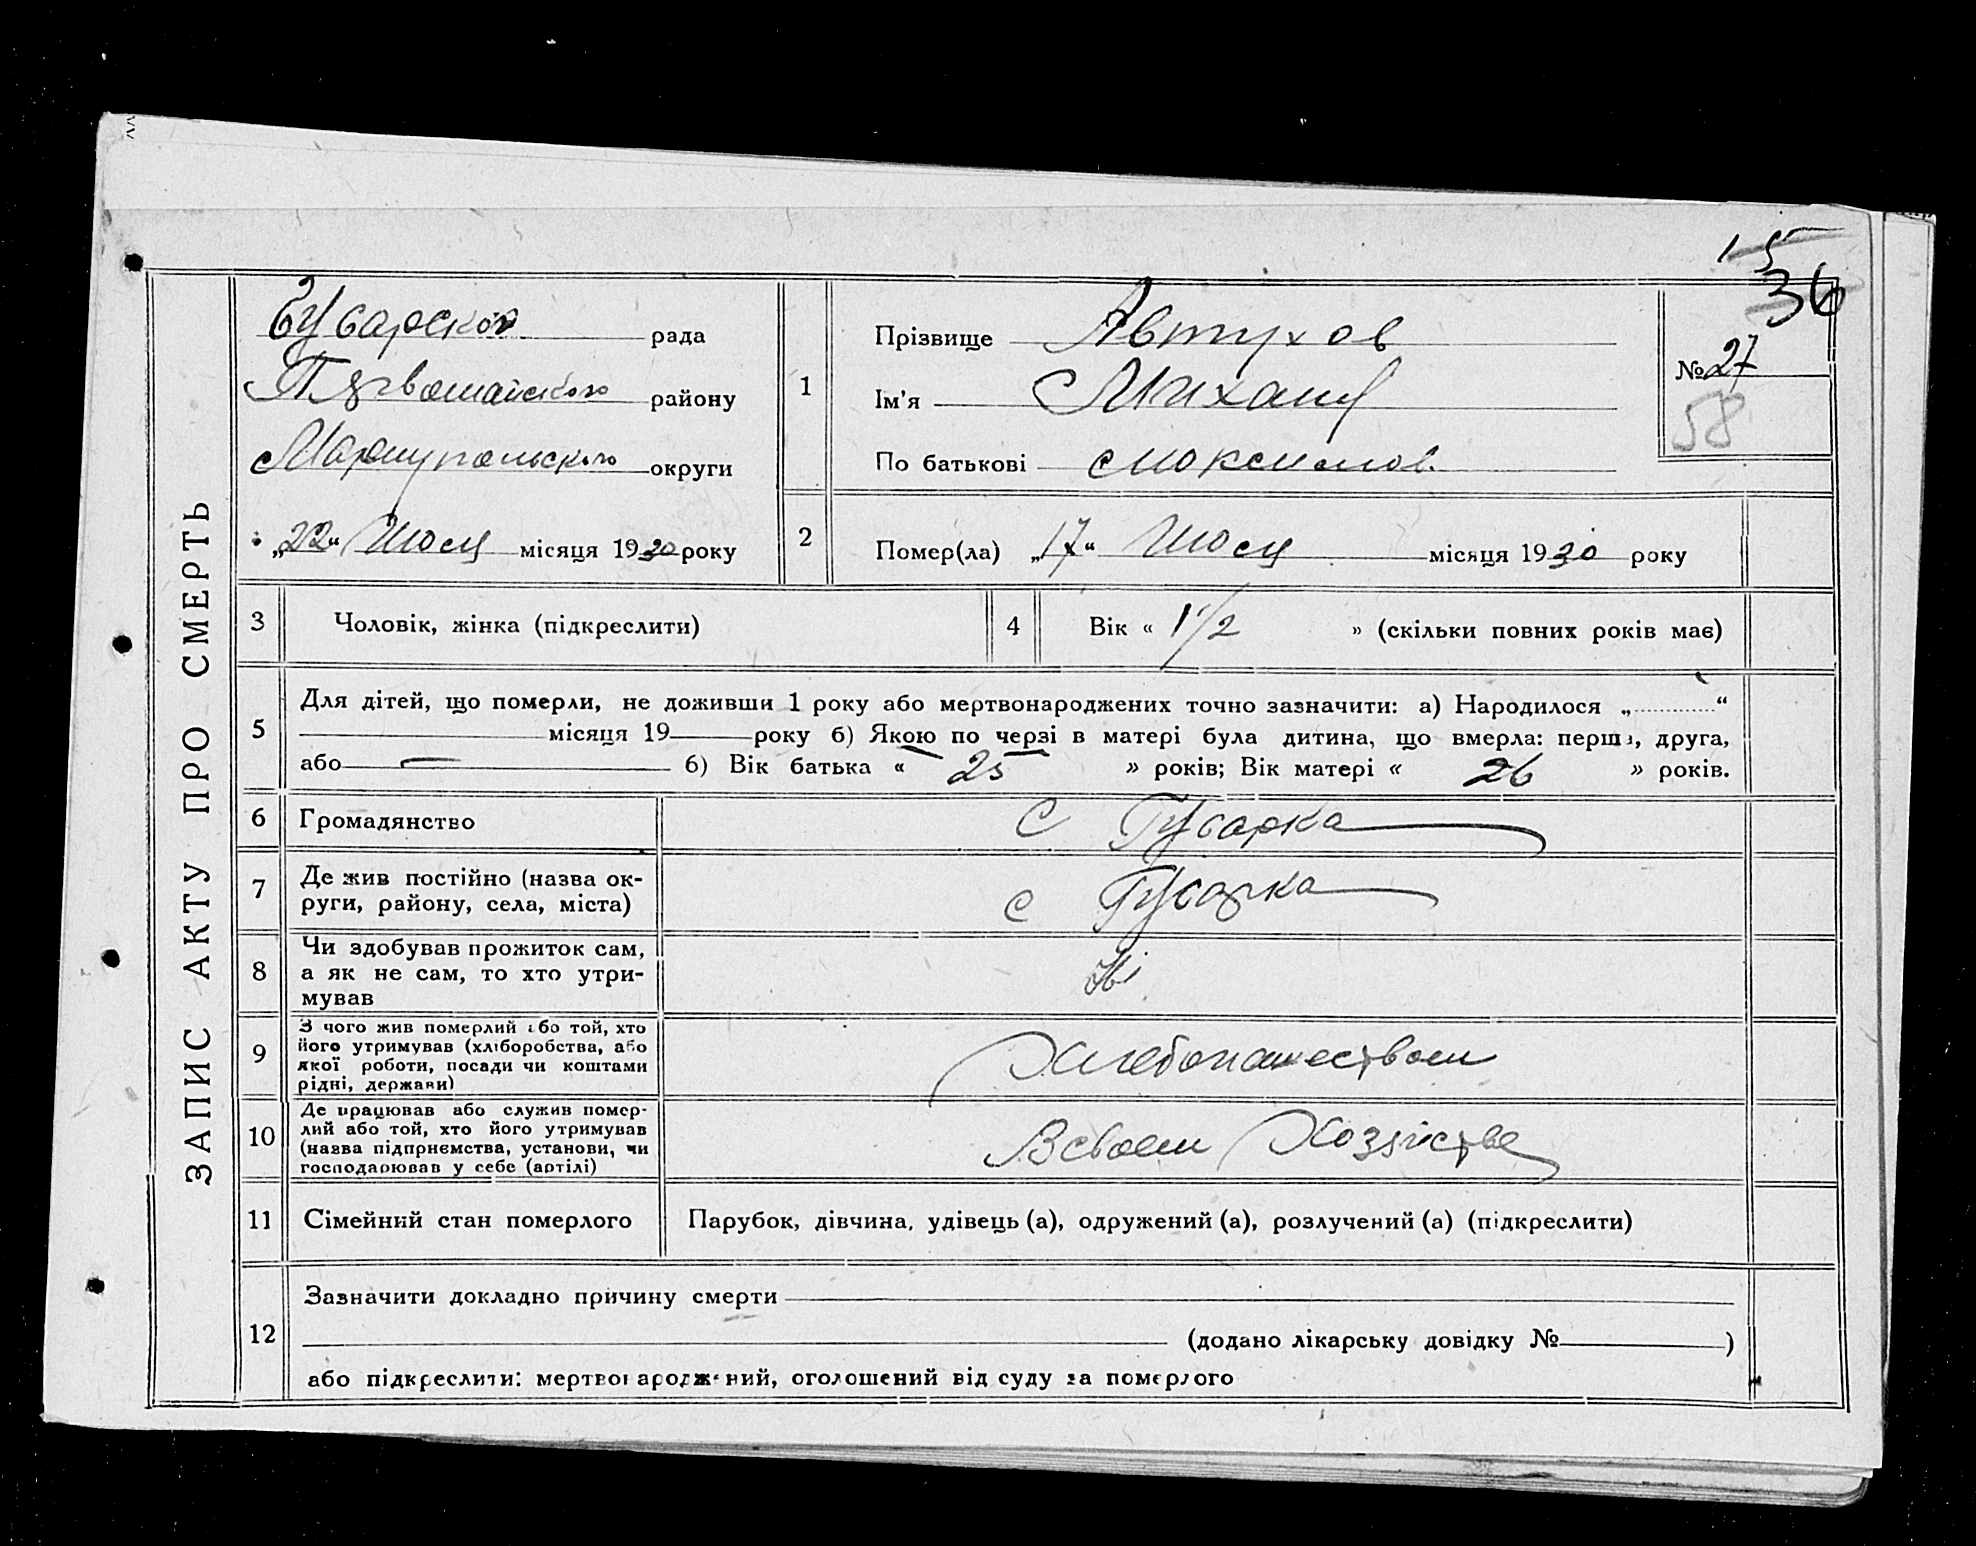 1 5
36
ЗАПИС АКТУ ПРО СМЕРТЬ
Гусарской рада
Первомайского району
Мариупольского округи
„22“ Июля місяця 1930 року
1
Прізвище Автухов
Ім'я Михаил
По батькові Максимов.
№ 27
58
2
Помер(ла) „17“ Июля місяця 1930 року
3 Чоловік, жінка (підкреслити)
4 Вік « 1 1/2 » (скільки повних років має)
5
Для дітей, що померли, не доживши 1 року або мертвонароджених точно зазначити: а) Народилося „ “
місяця 19 року б) Якою по черзі в матері була дитина, що вмерла: перша, друга,
або — б) Вік батька « 25 » років; Вік матері « 26 » років.
6 Громадянство с Гусарка
7 Де жив постійно (назва ок-
руги, району, села, міста) с Гусарка
8 Чи здобував прожиток сам,
а як не сам, то хто утри-
мував
9 З чого жив померлий або той, хто
його утримував (хліборобства, або
якої роботи, посади чи коштами
рідні, держави)
Хлебопашеством
10 Де працював або служив помер-
лий або той, хто його утримував
(назва підприємства, установи, чи
господарював у себе (артілі)
В своем Хозяйстве
11 Сімейний стан померлого Парубок, дівчина, удівець (а), одружений (а), розлучений (а) (підкреслити)
12
Зазначити докладно причину смерти
(додано лікарську довідку № )
або підкреслити: мертвонароджений, оголошений від суду за померлого